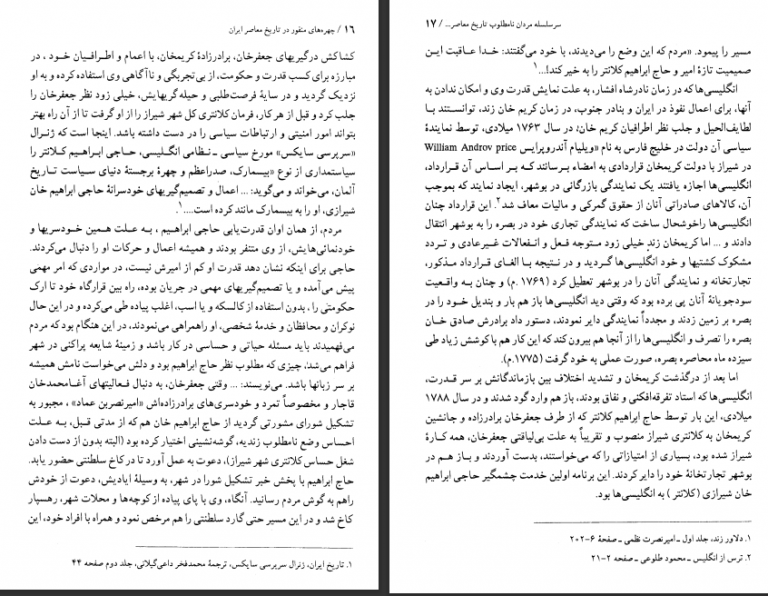 ۱۶ / چهره‌های منفور در تاریخ معاصر ایران
کشاکش درگیریهای جعفرخان، برادرزادهٔ کریمخان، با اعمام و اطرافیان خود، در
مبارزه برای کسب قدرت و حکومت، از بی‌تجربگی و ناآگاهی وی استفاده کرده و به او
نزدیک گردید و در سایهٔ فرصت‌طلبی و حیله‌گریهایش، خیلی زود نظر جعفرخان را
جلب کرد و قبل از هر کار، فرمان کلانتری کل شهر شیراز را از او گرفت تا از آن راه بهتر
بتواند امور امنیتی و ارتباطات سیاسی را در دست داشته باشد. اینجا است که ژنرال
«سرپرسی سایکس» مورخ سیاسی ـ نظامی انگلیسی، حاجی ابراهیم کلانتر را
سیاستمداری از نوع «بیسمارک، صدراعظم و چهرهٔ برجستهٔ دنیای سیاست تاریخ
آلمان، می‌خواند و می‌گوید: ... اعمال و تصمیم‌گیریهای خودسرانهٔ حاجی ابراهیم خان
شیرازی، او را به بیسمارک مانند کرده است....۱
مردم، از همان اوان قدرت‌یابی حاجی ابراهیم، به علت همین خودسریها و
خودنمائی‌هایش، از وی متنفر بودند و همیشه اعمال و حرکات او را دنبال می‌کردند.
حاجی برای اینکه نشان دهد قدرت او کم از امیرش نیست، در مواردی که امر مهمی
پیش می‌آمده و یا تصمیم‌گیریهای مهمی در جریان بوده، راه بین قرارگاه خود تا ارک
حکومتی را، بدون استفاده از کالسکه و یا اسب، اغلب پیاده طی می‌کرده و در این حال
نوکران و محافظان و خدمهٔ شخصی، او را همراهی می‌نمودند، در این هنگام بود که مردم
می‌فهمیدند باید مسئله حیاتی و حساسی در کار باشد و زمینهٔ شایعه پراکنی در شهر
فراهم می‌شد، چیزی که مطلوب نظر حاج ابراهیم بود و دلش می‌خواست نامش همیشه
بر سر زبانها باشد. می‌نویسند: ... وقتی جعفرخان، به دنبال فعالیتهای آغامحمدخان
قاجار و مخصوصاً تمرد و خودسری‌های برادرزاده‌اش «امیرنصرین عماد»، مجبور به
تشکیل شورای مشورتی گردید از حاج ابراهیم خان هم که از مدتی قبل، به علت
احساس وضع نامطلوب زندیه، گوشه‌نشینی اختیار کرده بود (البته بدون از دست دادن
شغل حساس کلانتری شهر شیراز)، دعوت به عمل آورد تا در کاخ سلطنتی حضور یابد.
حاج ابراهیم با پخش خبر تشکیل شورا در شهر، به وسیلهٔ ایادیش، دعوت از خودش
را هم به گوش مردم رسانید. آنگاه، وی با پای پیاده از کوچه‌ها و محلات شهر، رهسپار
کاخ شد و در این مسیر حتی گارد سلطنتی را هم مرخص نمود و همراه با افراد خود، این
۱. تاریخ ایران، ژنرال سرپرسی سایکس، ترجمهٔ محمدفخر داعی‌گیلانی، جلد دوم صفحه ۴۴
سرسلسله مردان نامطلوب تاریخ معاصر... / ۱۷
مسیر را پیمود. «مردم که این وضع را می‌دیدند، با خود می‌گفتند: خدا عاقبت این
صمیمیت تازهٔ امیر و حاج ابراهیم کلانتر را به خیر کند!...۱
انگلیسی‌ها که در زمان نادرشاه افشار، به علت نمایش قدرت وی و امکان ندادن به
آنها، برای اعمال نفوذ در ایران و بنادر جنوب، در زمان کریم خان زند، توانستند با
لطایف‌الحیل و جلب نظر اطرافیان کریم خان؛ در سال ۱۷۶۳ میلادی، توسط نمایندهٔ
سیاسی آن دولت در خلیج فارس به نام «ویلیام آندروپرایس William Androv price
در شیراز با دولت کریمخان قراردادی به امضاء برسانند که بر اساس آن قرارداد،
انگلیسی‌ها اجازه یافتند یک نمایندگی بازرگانی در بوشهر، ایجاد نمایند که بموجب
آن، کالاهای صادراتی آنان از حقوق گمرکی و مالیات معاف شد۲. این قرارداد چنان
انگلیسی‌ها را خوشحال ساخت که نمایندگی تجاری خود در بصره را به بوشهر انتقال
دادند و ... اما کریمخان زند خیلی زود متوجه فعل و انفعالات غیرعادی و تردد
مشکوک کشتیها و خود انگلیسی‌ها گردید و در نتیجه با الغای قرارداد مذکور،
تجارتخانه و نمایندگی آنان را در بوشهر تعطیل کرد (۱۷۶۹ .م) و چنان به واقعیت
سودجویانهٔ آنان پی برده بود که وقتی دید انگلیسی‌ها باز هم بار و بندیل خود را در
بصره بر زمین زدند و مجدداً نمایندگی دایر نمودند، دستور داد برادرش صادق خان
بصره را تصرف و انگلیسی‌ها را از آنجا هم بیرون کند که این کار هم با کوشش زیاد طی
سیزده ماه محاصره بصره، صورت عملی به خود گرفت (۱۷۷۵.م).
اما بعد از درگذشت کریمخان و تشدید اختلاف بین بازماندگانش بر سر قدرت،
انگلیسی‌ها که استاد تفرقه‌افکنی و نفاق بودند، باز هم وارد گود شدند و در سال ۱۷۸۸
میلادی، این بار توسط حاج ابراهیم کلانتر که از طرف جعفرخان برادرزاده و جانشین
کریمخان به کلانتری شیراز منصوب و تقریباً به علت بی‌لیاقتی جعفرخان، همه کارهٔ
شیراز شده بود، بسیاری از امتیازاتی را که می‌خواستند، بدست آوردند و باز هم در
بوشهر تجارتخانهٔ خود را دایر کردند. این برنامه اولین خدمت چشمگیر حاجی ابراهیم
خان شیرازی (کلانتر ) به انگلیسی‌ها بود.
۱. دلاور زند، جلد اول ـ امیرنصرت نظمی ـ صفحهٔ ۶-۲۰۲
۲. ترس از انگلیس ـ محمود طلوعی ـ صفحه ۲-۲۱